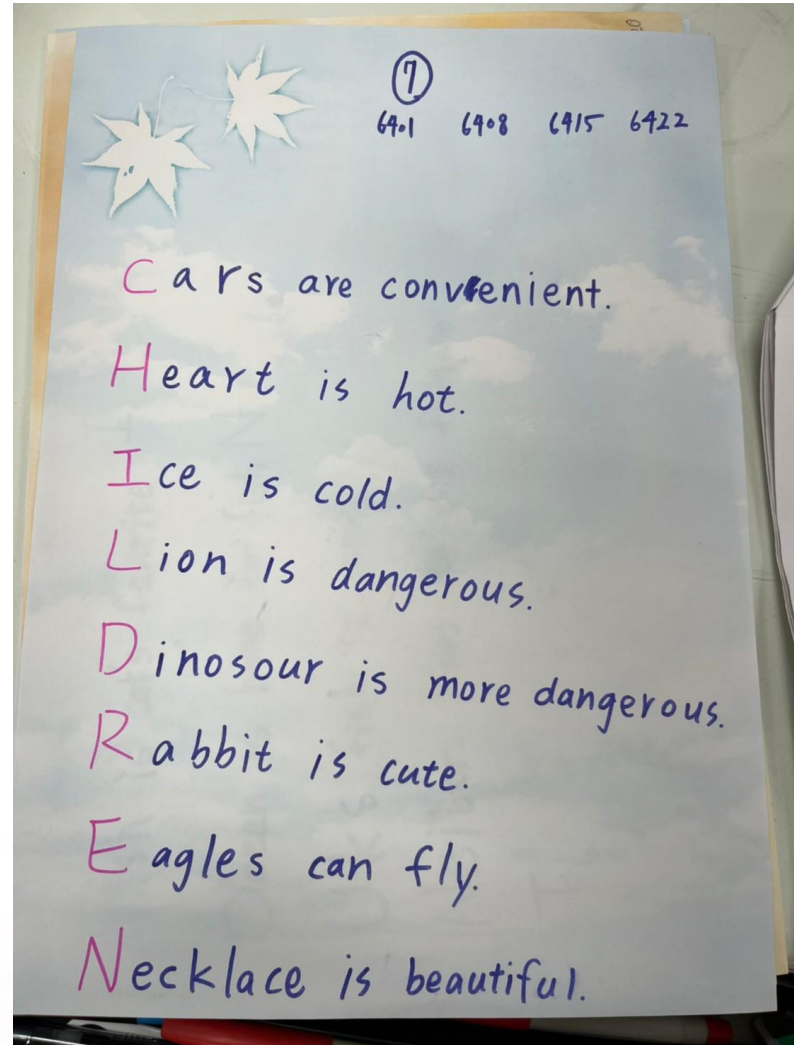 7
6401 6408 6415 6422
Cars are convenient.
Heart is hot.
Ice is cold.
Lion is dangerous.
Dinosour is more dangerous.
Rabbit is cute.
Eagles can fly.
Necklace is beautiful.